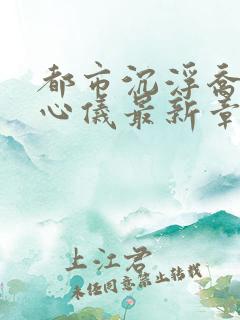 都市沉浮乔
心仪最新章
上江君
未经同意禁止转载